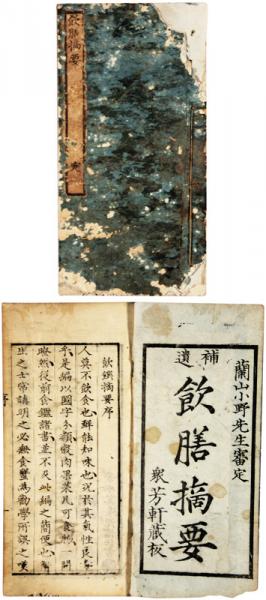 飲膳摘要
蘭山小野先生審定
補遺
飲膳摘要
衆芳軒藏板
飲饌摘要序
人莫不飲食也鮮能知味也況於其氣性良毒
乎是編以國字分類穀肉果菜凡可食物一開
瞭然從前食鑑諸書並不及此編之簡便也
生之士常講明之必無食蠱為動學所誤之嘆
序